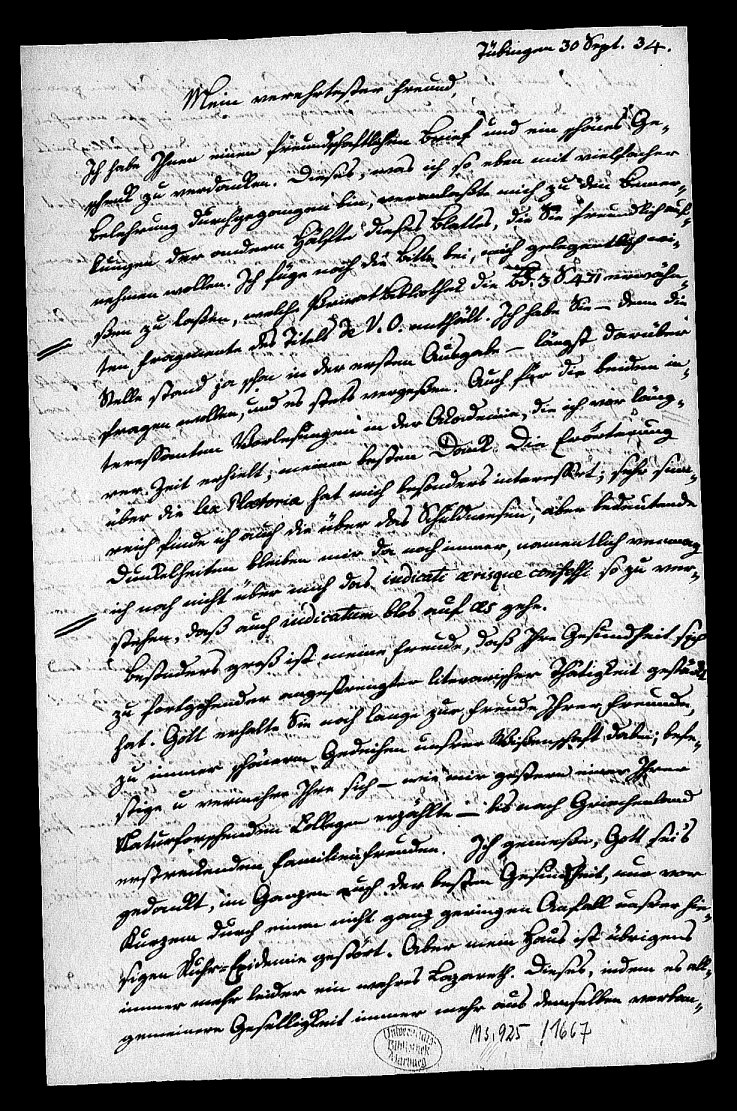 Tübingen 30 Sept. 34.
Mein verehrtester Freund,
Ich habe Ihnen einen freundschaftlichen Brief und ein schönes Ge-
schenk zu verdanken. Dieses, was ich so eben mit vielfacher
Belehrung durchgegangen bin, veranlaßte mich zu den Bemer-
kungen der andern Hälfte dieses Blattes, die Sie freundlich auf-
nehmen wollen. Ich füge noch die Bitte bei, mich gelegentlich wi-
ßen zu laßen, welche Privatbibliothek die Bd. 3 S 471 erwähn-
ten Fragmente des Titels de V. O. enthält. Ich habe Sie – denn die
Stelle stand ja schon in der ersten Ausgabe – längst darüber
fragen wollen, und es stets vergeßen. Auch für die beiden in-
tereßanten Vorlesungen in der Akademie, die ich vor länge-
rer Zeit erhielt, meinen besten Dank. Die Erörterung
über die lex Plaetoria hat mich besonders interessirt; sehr sinn-
reich finde ich auch die über das Schuldwesen, aber bedeutende
Dunkelheiten bleiben mir da noch immer, namentlich vermag
ich noch nicht über mich das iudicati aerisque confessi so zu ver-
stehen, daß auch iudicatum blos auf aes gehe.
Besonders groß ist meine Freude, daß Ihre Gesundheit sich
zu fortgehender angestrengter literarischer Thätigkeit gestärkt
hat. Gott erhalte Sie noch lange zur Freude Ihrer Freunde,
zu immer schönerm Gedeihen unsrer Wißenschaft dabei; befe-
stige u vermehre Ihre sich – wie mir gestern einer Ihrer
Naturforschenden Collegen erzählte – bis nach Griechenland
erstreckenden Familienfreuden. Ich genieße, Gott sei's
gedankt, im Ganzen auch der besten Gesundheit, nur vor
Kurzem durch einen nicht ganz geringen Anfall unsrer hie-
sigen Ruhr-Epidemie gestört. Aber mein Haus ist übrigens
immer mehr leider ein wahres Lazareth. Dieses, indem es all-
gemeinere Geselligkeit immer mehr aus demselben verban-
Universitäts
Bibliothek
Marburg
Ms. 925/1667